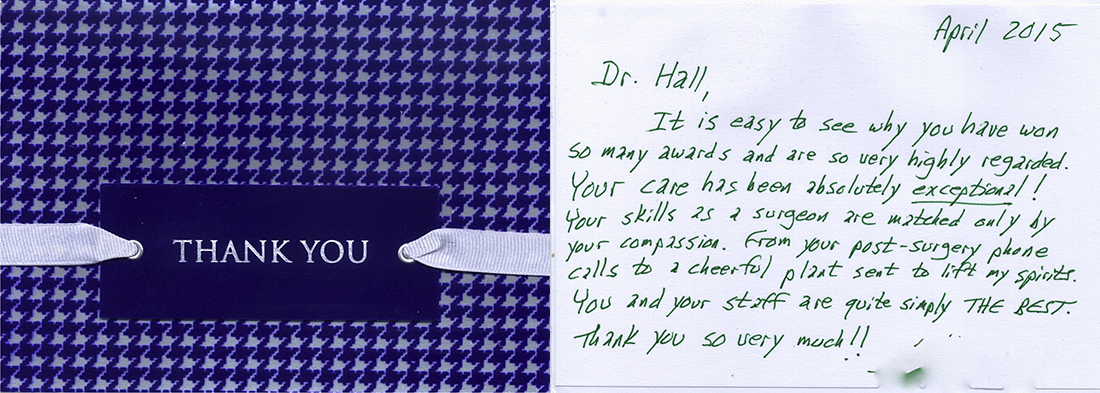 THANK YOU
April 2015
Dr. Hall,
It is easy to see why you have won
so many awards and are so very highly regarded.
Your care has been absolutely exceptional!
Your skills as a surgeon are matched only by
your compassion. From your post-surgery phone
calls to a cheerful plant sent to lift my spirits.
You and your staff are quite simply THE BEST.
Thank you so very much!!